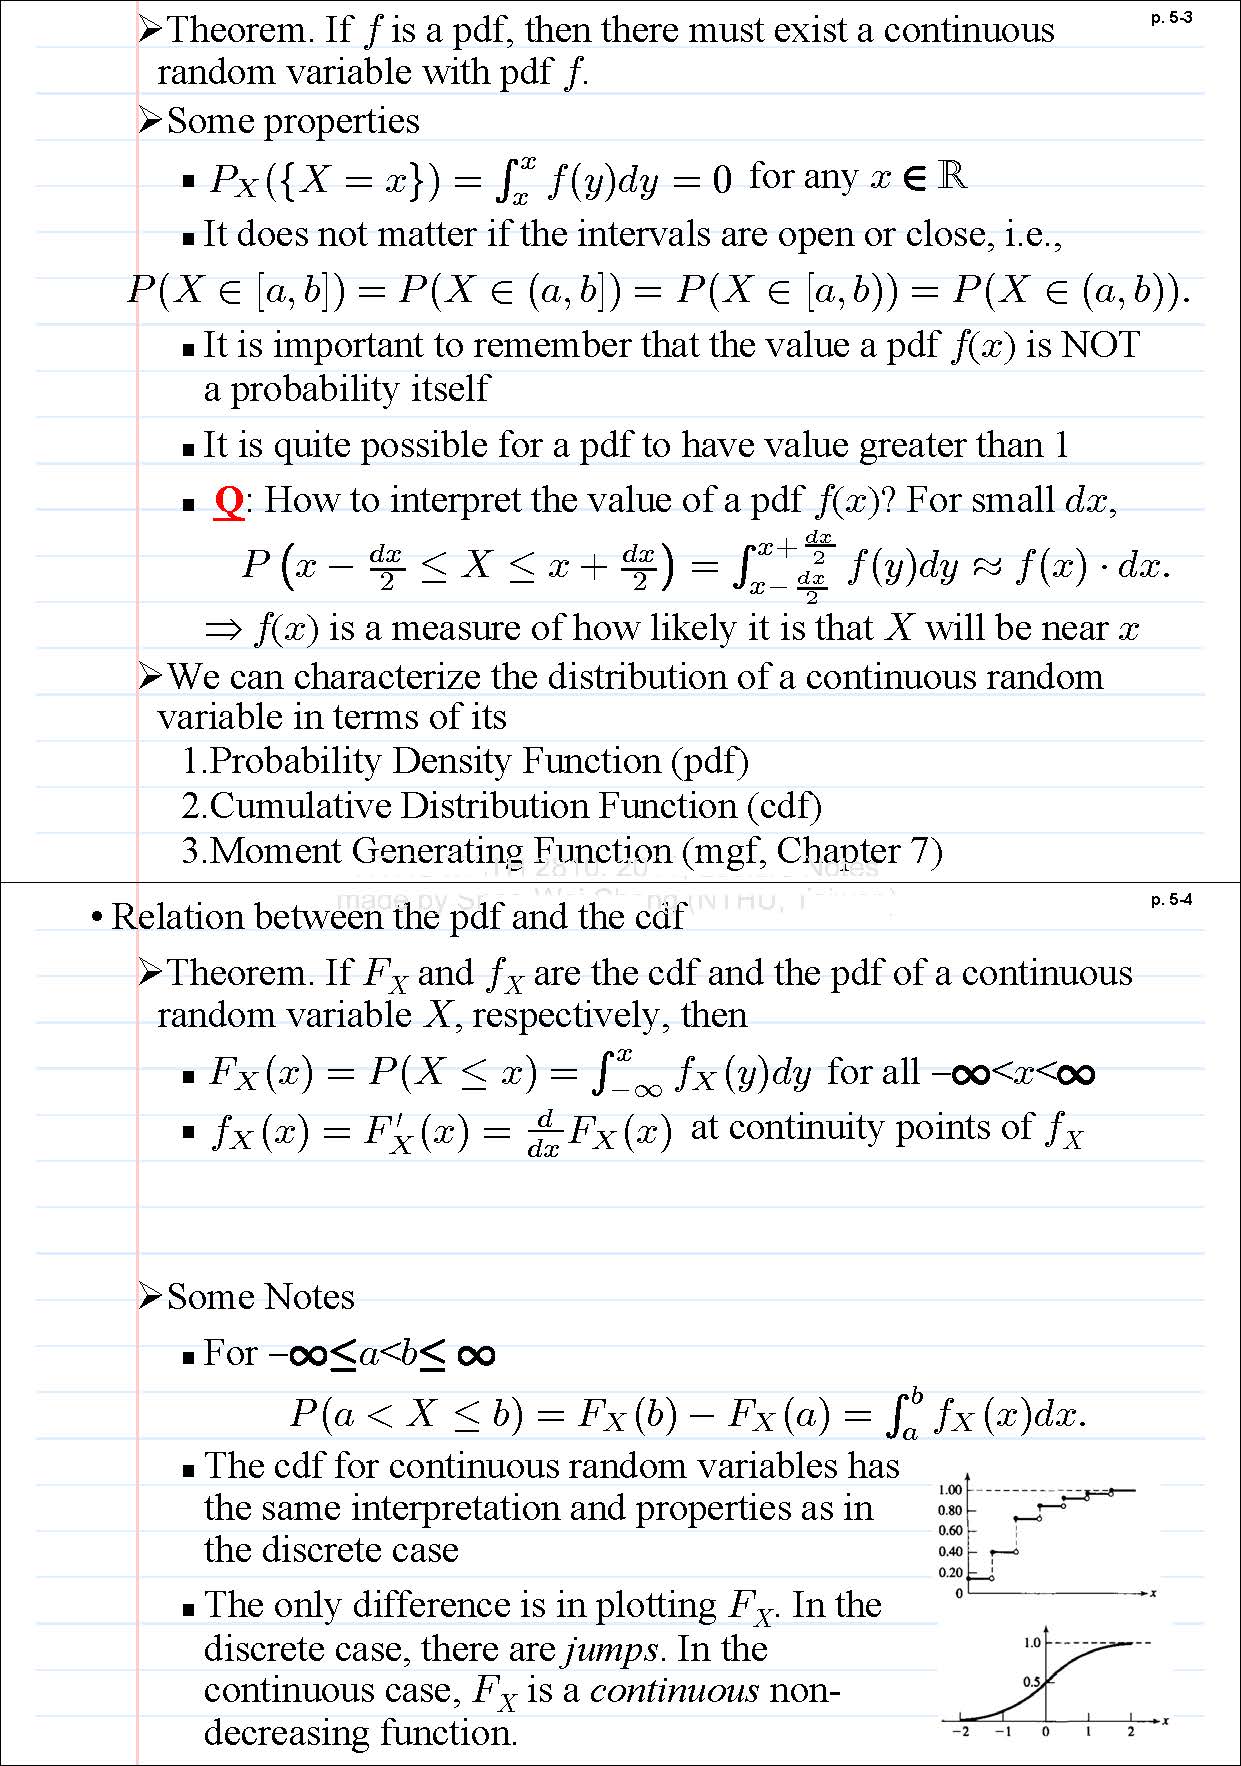 p. 5-3
➢Theorem. If f is a pdf, then there must exist a continuous
random variable with pdf f.
➢Some properties
▪ P_X({X = x}) = ∫_x^x f(y)dy = 0 for any x ∈ ℝ
▪ It does not matter if the intervals are open or close, i.e.,
P(X ∈ [a, b]) = P(X ∈ (a, b]) = P(X ∈ [a, b)) = P(X ∈ (a, b)).
▪ It is important to remember that the value a pdf f(x) is NOT
a probability itself
▪ It is quite possible for a pdf to have value greater than 1
▪ Q: How to interpret the value of a pdf f(x)? For small dx,
P(x − dx/2 ≤ X ≤ x + dx/2) = ∫_{x−dx/2}^{x+dx/2} f(y)dy ≈ f(x) · dx.
⇒ f(x) is a measure of how likely it is that X will be near x
➢We can characterize the distribution of a continuous random
variable in terms of its
1.Probability Density Function (pdf)
2.Cumulative Distribution Function (cdf)
3.Moment Generating Function (mgf, Chapter 7)
Notes
made by
p. 5-4
• Relation between the pdf and the cdf
➢Theorem. If F_X and f_X are the cdf and the pdf of a continuous
random variable X, respectively, then
▪ F_X(x) = P(X ≤ x) = ∫_{−∞}^x f_X(y)dy for all −∞<x<∞
▪ f_X(x) = F′_X(x) = d/dx F_X(x) at continuity points of f_X
➢Some Notes
▪ For −∞≤a<b≤ ∞
P(a < X ≤ b) = F_X(b) − F_X(a) = ∫_a^b f_X(x)dx.
▪ The cdf for continuous random variables has
the same interpretation and properties as in
the discrete case
▪ The only difference is in plotting F_X. In the
discrete case, there are jumps. In the
continuous case, F_X is a continuous non-
decreasing function.
1.00
0.80
0.60
0.40
0.20
0 x
1.0
0.5
−2 −1 0 1 2 x